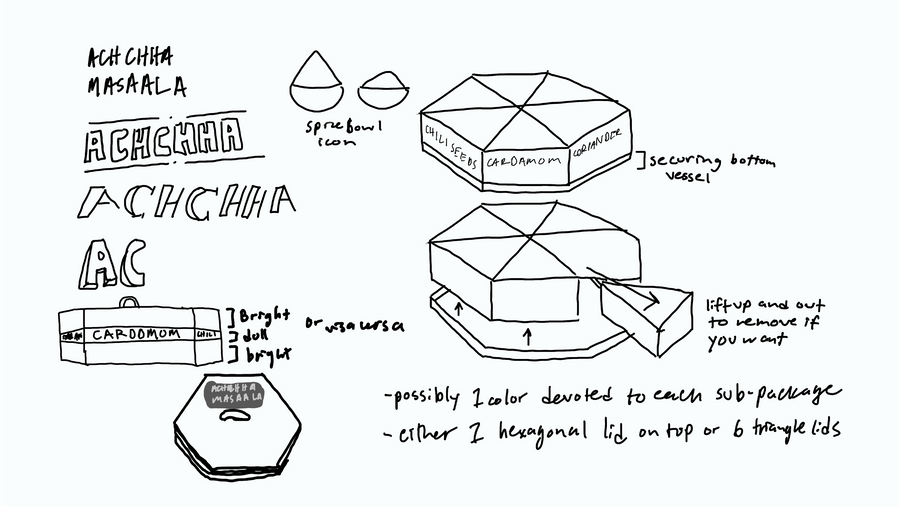 ACHCHHA
MASAALA
ACHCHHA
ACHCHHA
AC
spice bowl
icon
CHILI SEEDS
CARDAMOM
CORIANDER
securing bottom
vessel
CARDOMOM
CHILI
Bright
dull
bright
or visa versa
lift up and out
to remove if
you want
ACHCHHA
MASAALA
-possibly 1 color devoted to each sub-package
-either 1 hexagonal lid on top or 6 triangle lids